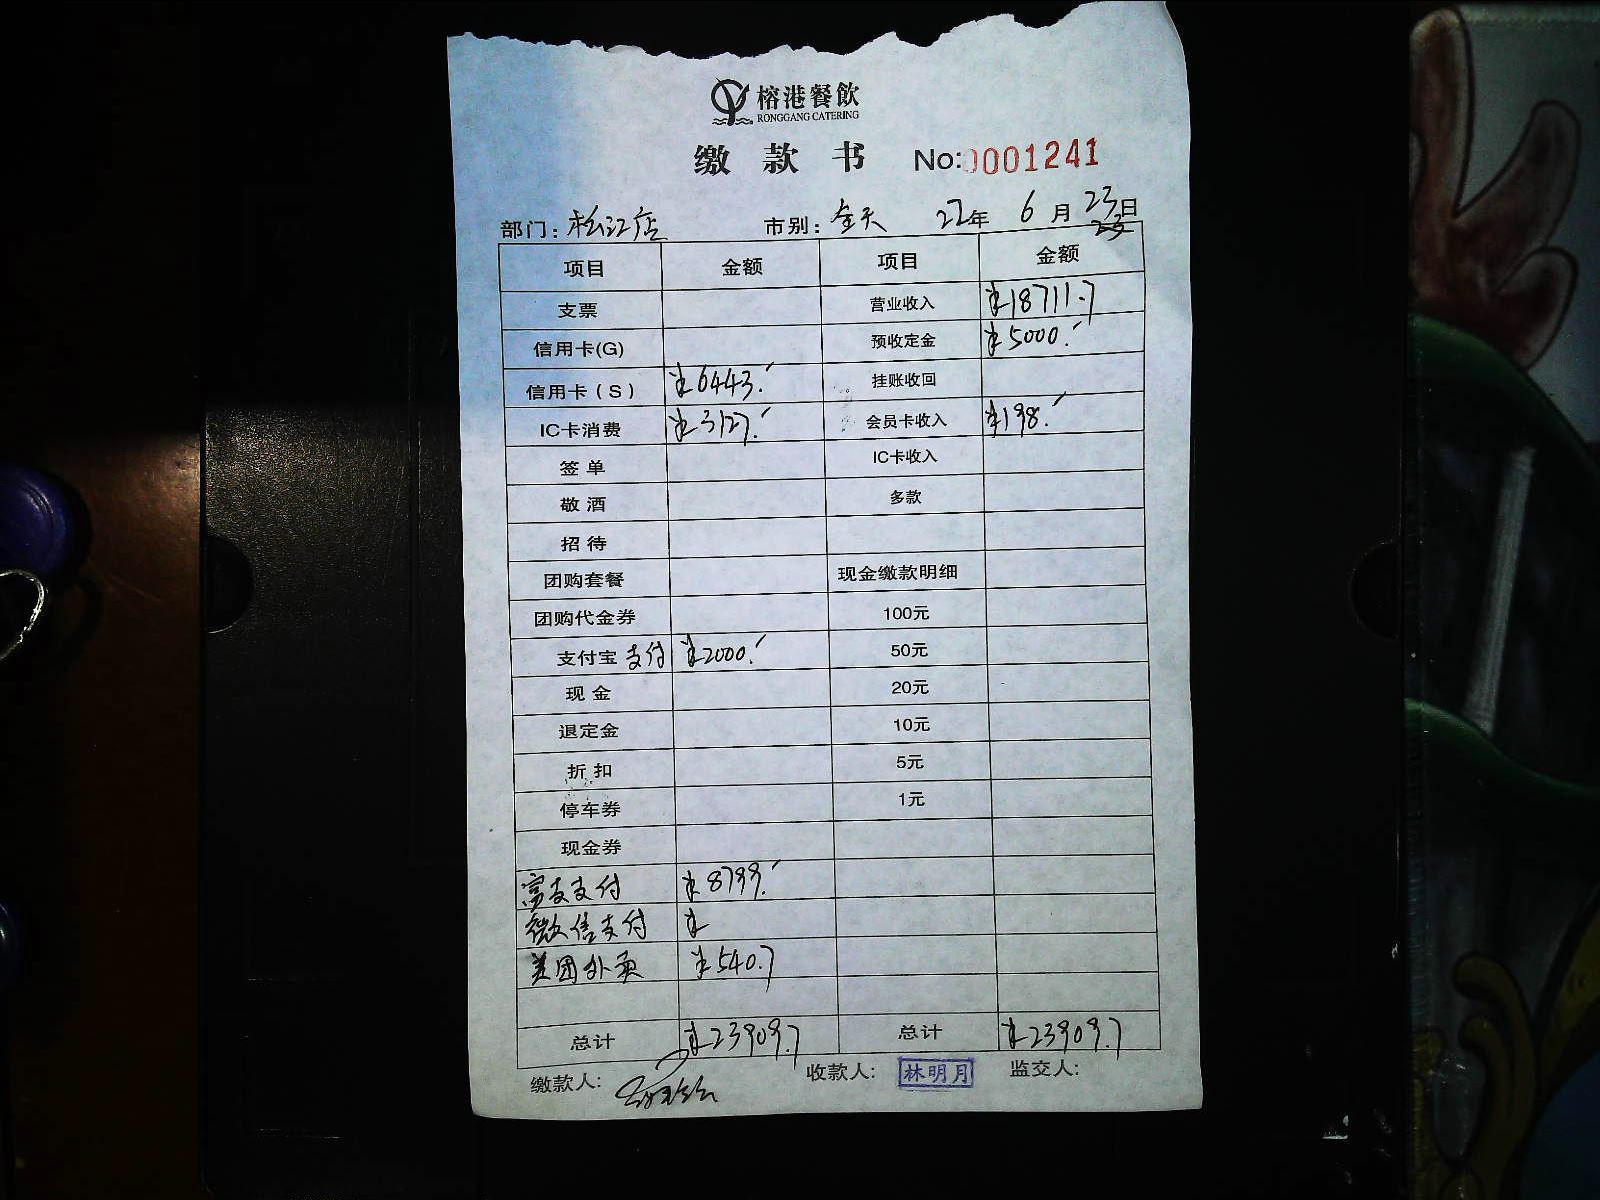 榕港餐飲
RONGGANG CATERING
缴款书 No:0001241
部门: 松江店 市别: 全天 22年 6月 23日
项目 金额 项目 金额
支票 营业收入 ¥18711.7
信用卡(G) 预收定金 ¥5000.-
信用卡(S) ¥6443.- 挂账收回
IC卡消费 ¥3127.- 会员卡收入 ¥198.-
签单 IC卡收入
敬酒 多款
招待
团购套餐 现金缴款明细
团购代金券 100元
支付宝支付 ¥2000.- 50元
现金 20元
退定金 10元
折扣 5元
停车券 1元
现金券
富友支付 ¥8799.-
微信支付 ¥
美团外卖 ¥540.7
总计 ¥23909.7 总计 ¥23909.7
缴款人: 收款人: 林明月 监交人: